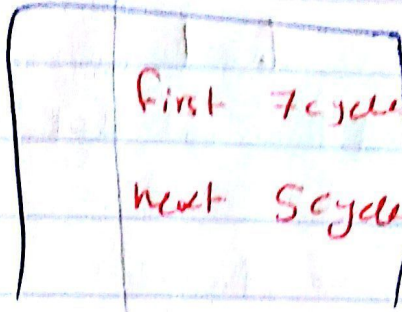 First 7cycle
next 5cycle